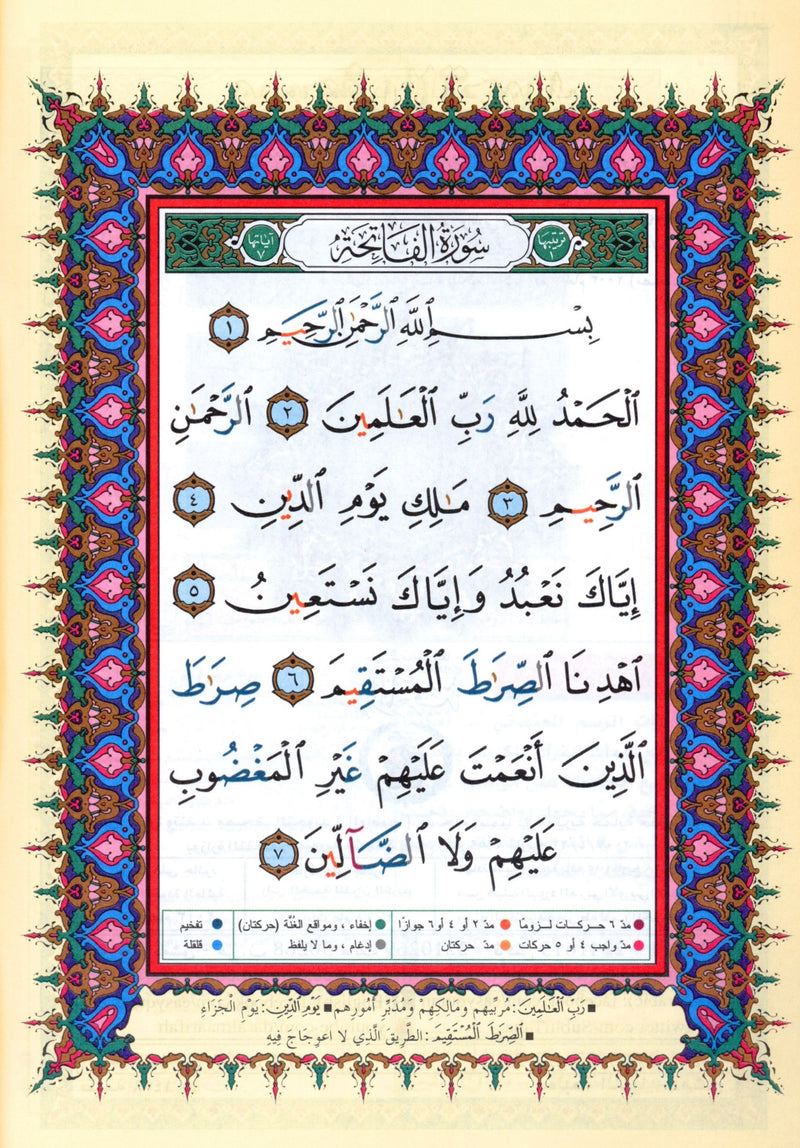 ترتيبها ١ سُورَةُ الفَاتِحَةِ آياتها ٧
بِسْمِ ٱللَّهِ ٱلرَّحْمَٰنِ ٱلرَّحِيمِ ١
ٱلْحَمْدُ لِلَّهِ رَبِّ ٱلْعَٰلَمِينَ ٢ ٱلرَّحْمَٰنِ
ٱلرَّحِيمِ ٣ مَٰلِكِ يَوْمِ ٱلدِّينِ ٤
إِيَّاكَ نَعْبُدُ وَإِيَّاكَ نَسْتَعِينُ ٥
ٱهْدِنَا ٱلصِّرَٰطَ ٱلْمُسْتَقِيمَ ٦ صِرَٰطَ
ٱلَّذِينَ أَنْعَمْتَ عَلَيْهِمْ غَيْرِ ٱلْمَغْضُوبِ
عَلَيْهِمْ وَلَا ٱلضَّآلِّينَ ٧
مدّ ٦ حركات لزومًا مدّ ٢ أو ٤ أو ٦ جوازًا إخفاء، ومواقع الغُنَّة (حركتان) تفخيم
مدّ واجب ٤ أو ٥ حركات مدّ حركتان إدغام، وما لا يلفظ قلقلة
رَبِّ ٱلْعَٰلَمِينَ: مُرَبِّيهِم وَمَالِكِهِمْ وَمُدَبِّرِ أُمُورِهِم يَوْمِ ٱلدِّينِ: يَوْمِ الْجَزَاءِ
ٱلصِّرَٰطَ ٱلْمُسْتَقِيمَ: الطَّرِيقَ الَّذِي لا اعوِجَاجَ فِيهِ